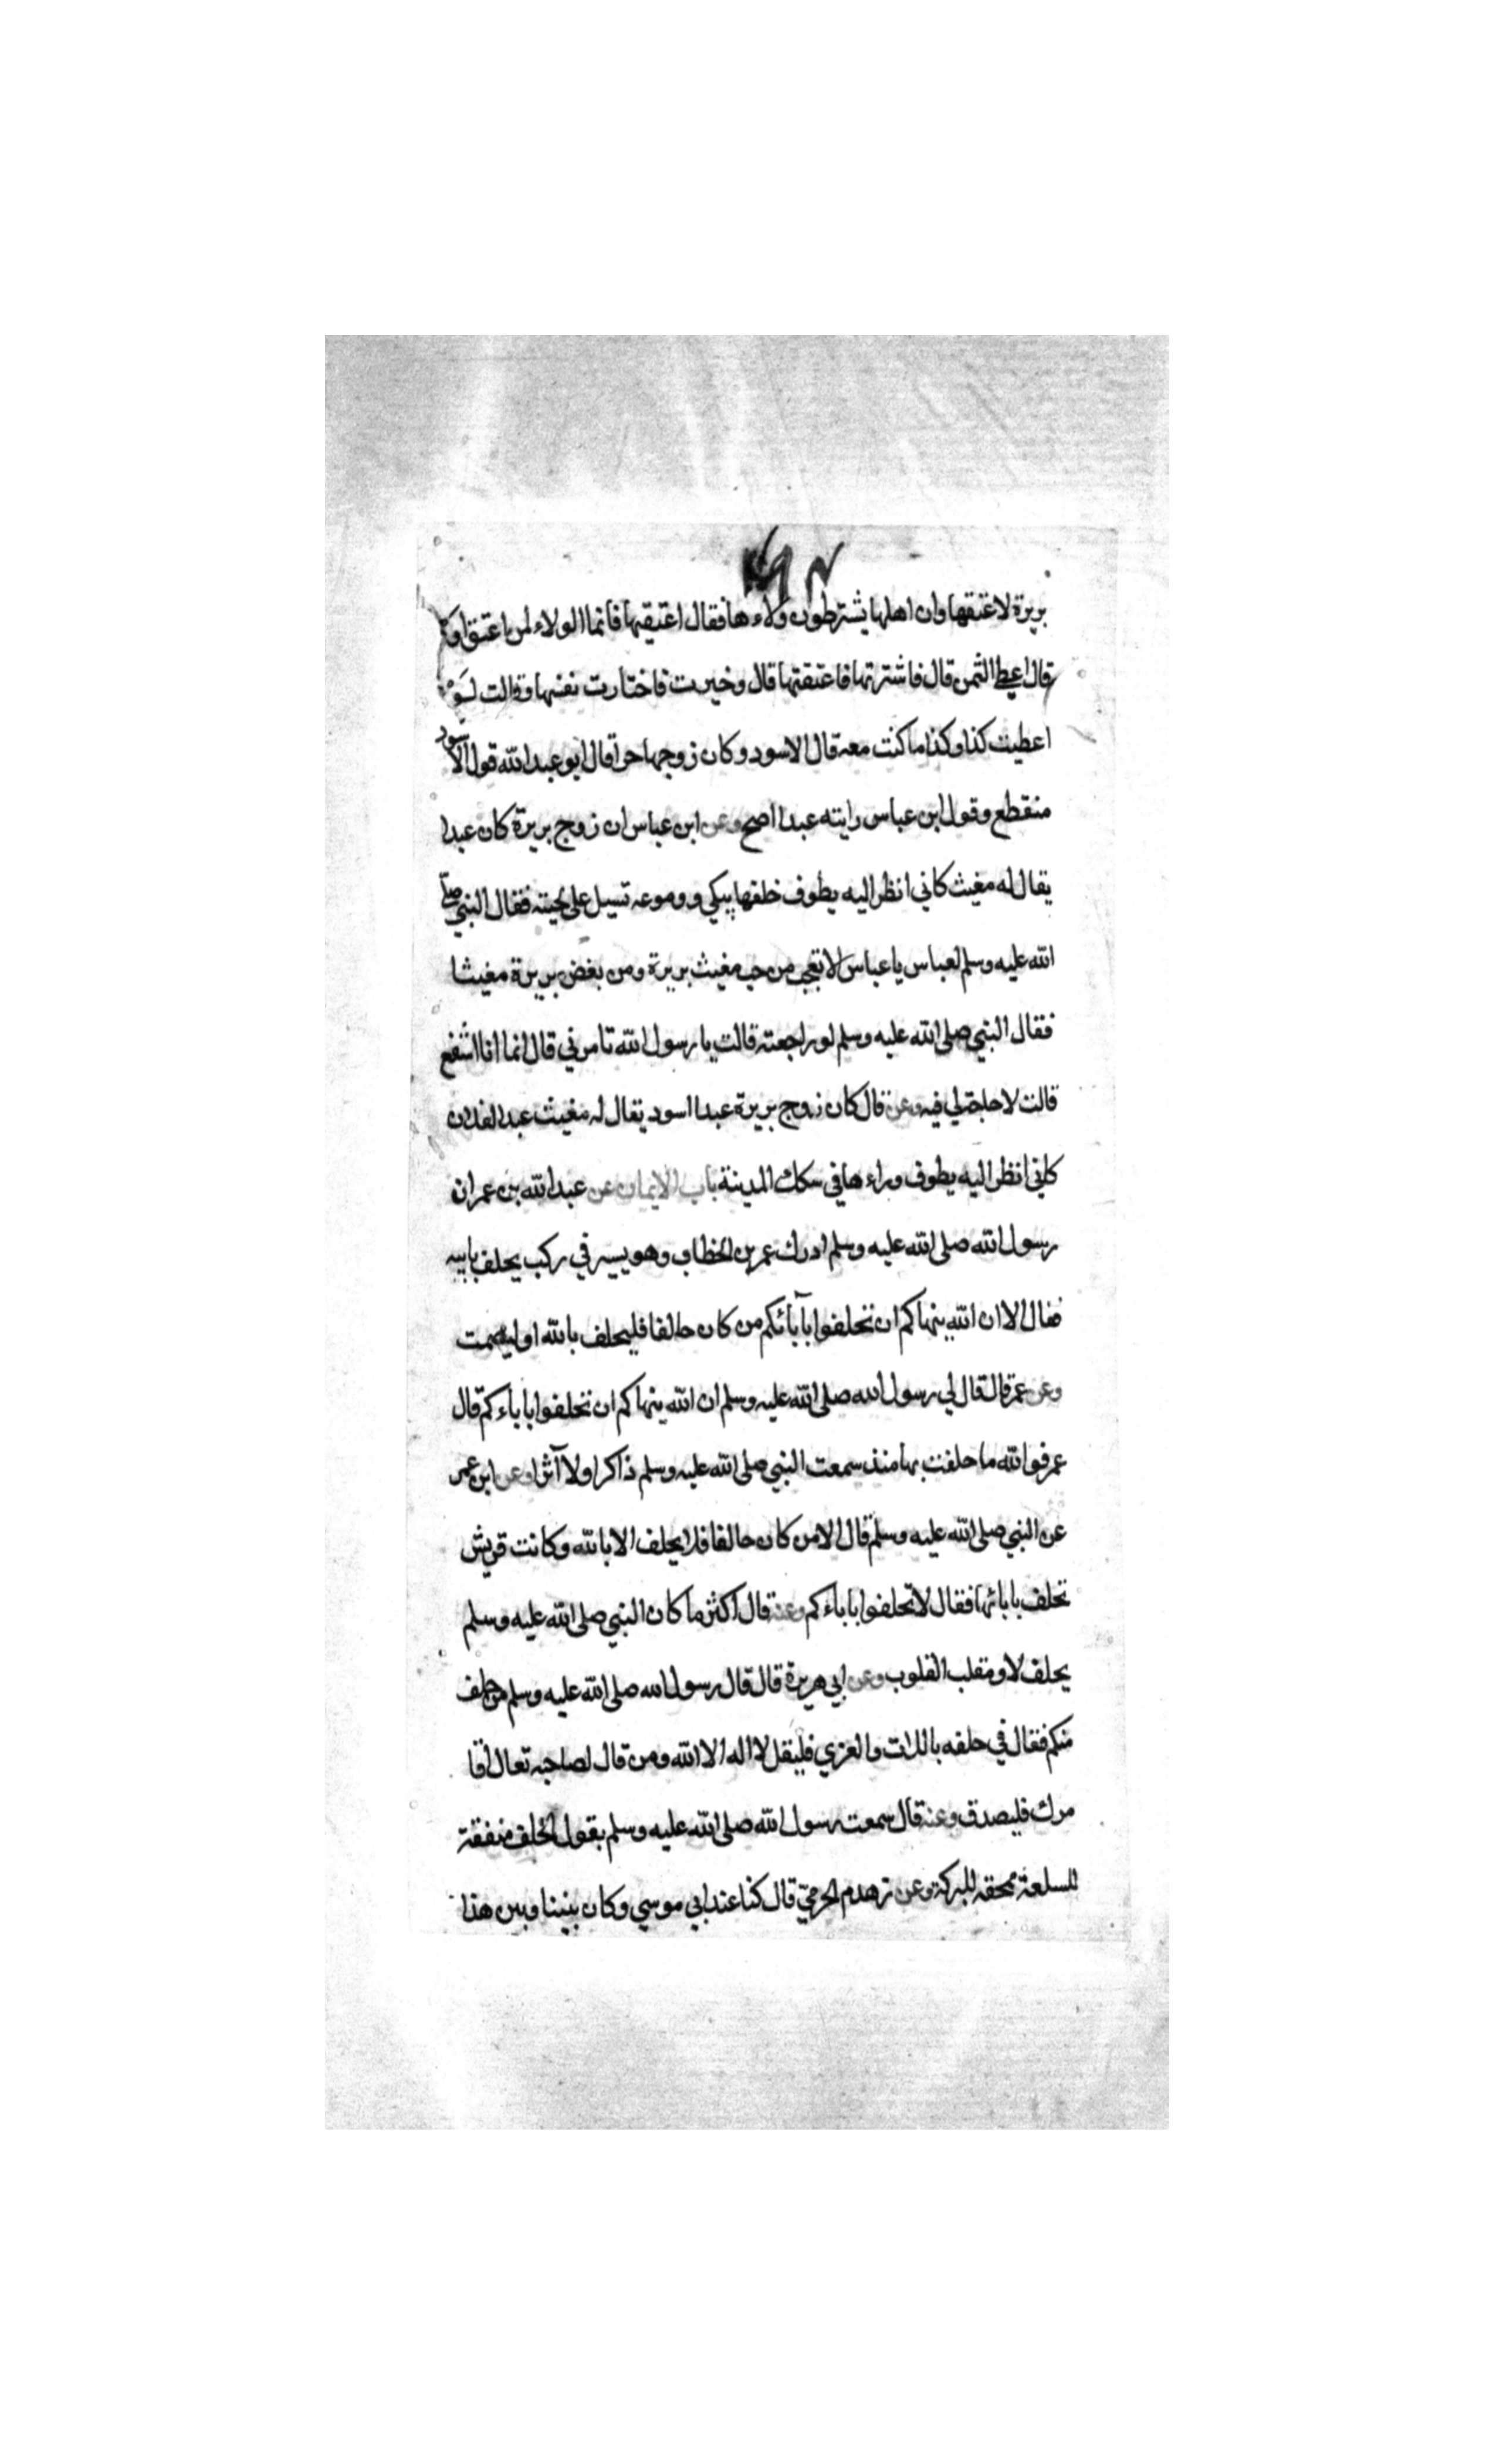 بريرة لاعتقها وان اهلها يشترطون ولاءها فقال اعتقيها فانما الولاء لمن اعتق او
قال اعطى الثمن قال فاشترتها فاعتقتها قال وخيرت فاختارت نفسها وقالت لو
اعطيت كذا وكذا ما كنت معه قال الاسود وكان زوجها حرا قال ابو عبد الله قول الاسود
منقطع وقول ابن عباس رايته عبدا اصح وعن ابن عباس ان زوج بريرة كان عبدا
يقال له مغيث كاني انظر اليه يطوف خلفها يبكي ودموعه تسيل على لحيته فقال النبي صلى
الله عليه وسلم لعباس يا عباس لا تعجب من حب مغيث بريرة ومن بغض بريرة مغيثا
فقال النبي صلى الله عليه وسلم لو راجعته قالت يا رسول الله تامرني قال انما انا اشفع
قالت لا حاجة لي فيه وعن قال كان زوج بريرة عبدا اسود يقال له مغيث عبدا لفلان
كاني انظر اليه يطوف وراءها في سكك المدينة باب الايمان عن عبد الله بن عمر ان
رسول الله صلى الله عليه وسلم ادرك عمر بن الخطاب وهو يسير في ركب يحلف بابيه
فقال الا ان الله ينهاكم ان تحلفوا بآبائكم من كان حالفا فليحلف بالله او ليصمت
وعن عمر قال قال لي رسول الله صلى الله عليه وسلم ان الله ينهاكم ان تحلفوا باباءكم قال
عمر فوالله ما حلفت بها منذ سمعت النبي صلى الله عليه وسلم ذاكرا ولا آثرا وعن ابن عمر
عن النبي صلى الله عليه وسلم قال الا من كان حالفا فلا يحلف الا بالله وكانت قريش
تحلف بابائها فقال لا تحلفوا باباءكم وعنه قال اكثر ما كان النبي صلى الله عليه وسلم
يحلف لا ومقلب القلوب وعن ابي هريرة قال قال رسول الله صلى الله عليه وسلم من حلف
منكم فقال في حلفه باللات والعزي فليقل لا اله الا الله ومن قال لصاحبه تعال اقا
مرك فليصدق وعنه قال سمعت رسول الله صلى الله عليه وسلم يقول الحلف منفقة
للسلعة ممحقه للبركة وعن زهدم الجرمي قال كنا عند ابي موسي وكان بيننا وبين هذا